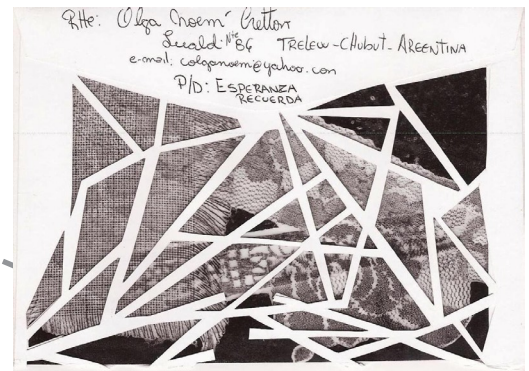 RHe: Olga Noemí Cretton
Lewald Nte 86 TRELEW-CHUBUT-ARGENTINA
e-mail: colganoemi@yahoo.com
P/D: ESPERANZA
RECUERDA